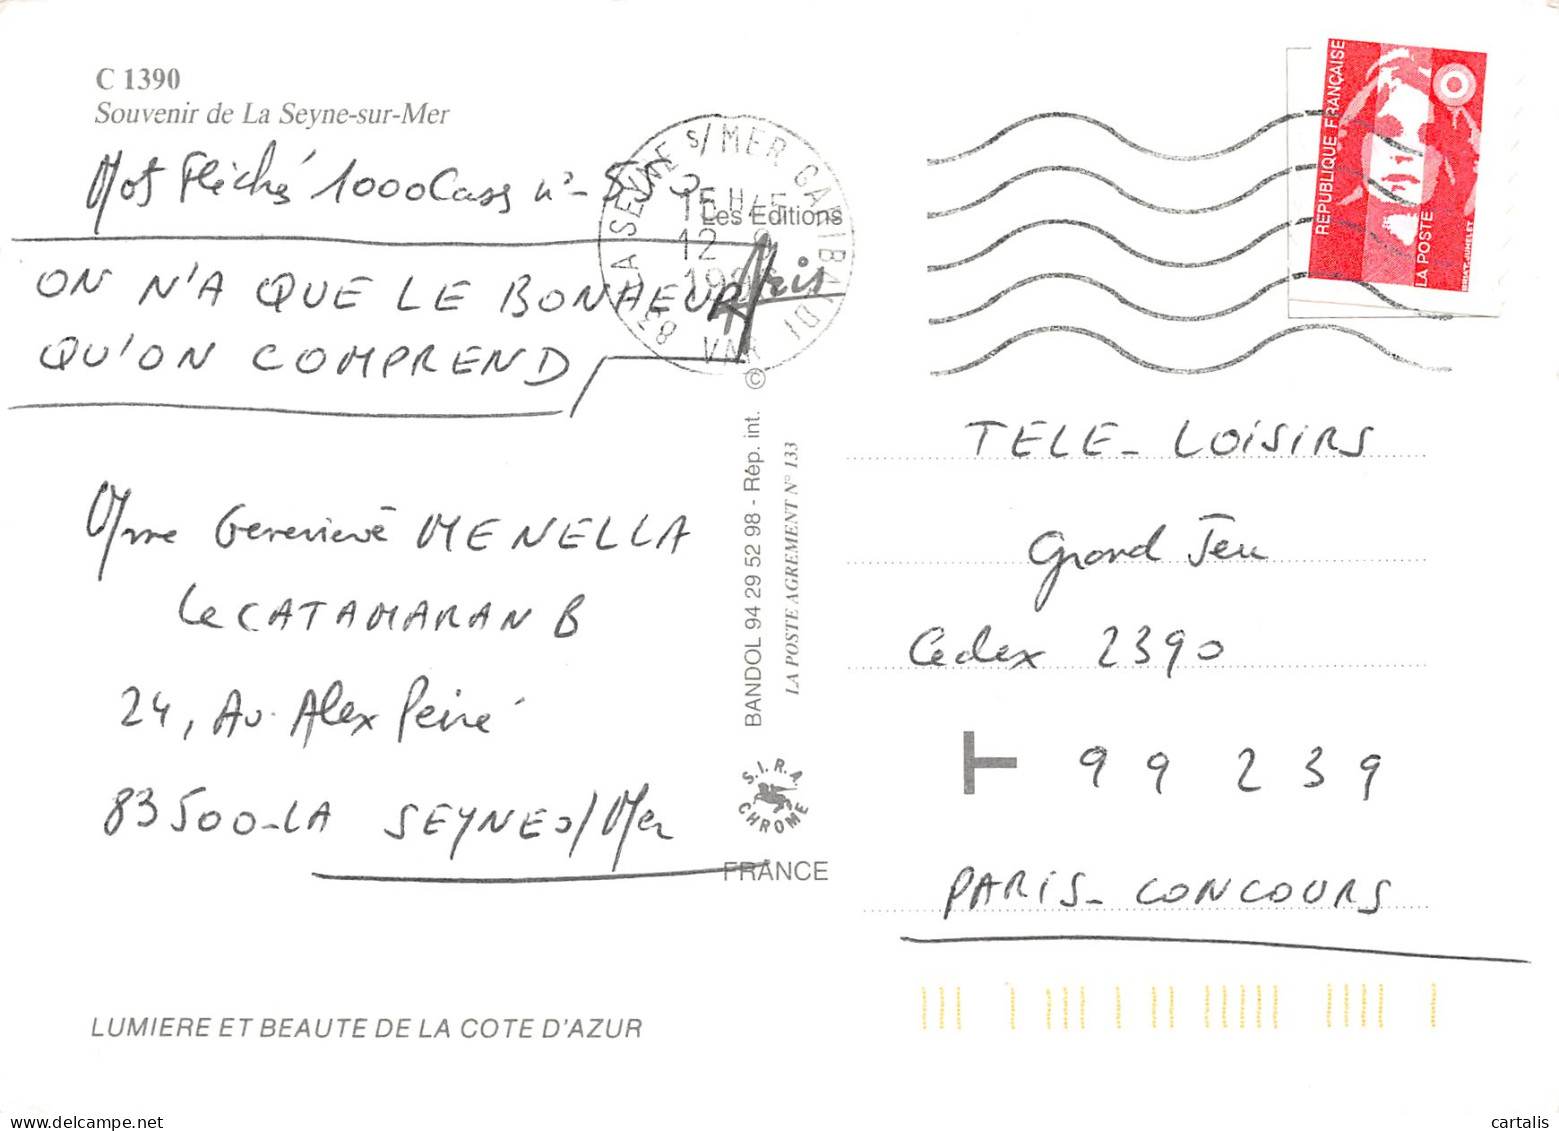 C 1390
Souvenir de La Seyne-sur-Mer
Mot Fléché 1000 Cass n°
ON N'A QUE LE BONHEUR
QU'ON COMPREND
Mme Genevieve MENELLA
Le CATAMARAN B
24, Av. Alex Peiré
83500-LA SEYNE S/Mer
LUMIERE ET BEAUTE DE LA COTE D'AZUR
83 LA SEYNE S/ MER GARIBALDI
12
VAR
Les Editions
Aris
©
BANDOL 94 29 52 98 - Rép. int.
LA POSTE AGREMENT N° 133
S.I.R.A.
CHROME
FRANCE
REPUBLIQUE FRANÇAISE
LA POSTE
TELE-LOISIRS
Grand Jeu
Cedex 2390
99 239
PARIS-CONCOURS
cartalis